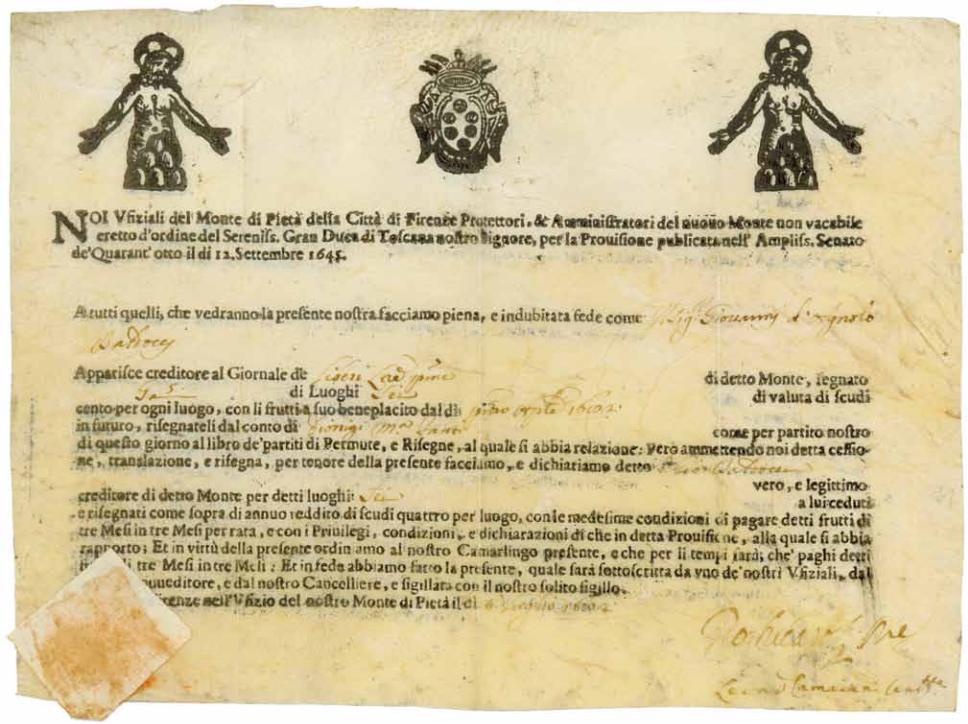 NOI Vfiziali del Monte di Pietà della Città di Firenze Protettori, & Amministratori del nuouo Monte non vacabile
eretto d'ordine del Sereniss. Gran Duca di Toscana nostro Signore, per la Prouisione publicata nell' Ampliss. Senato
de' Quarant' otto il di 12. Settembre 1645.
A tutti quelli, che vedranno la presente nostra facciamo piena, e indubitata fede come Giouanni d'Agnolo
Apparisce creditore al Giornale de di detto Monte, segnato
di Luoghi Sei di valuta di scudi
cento per ogni luogo, con li frutti a suo beneplacito dal di
in futuro, risegnateli dal conto di come per partito nostro
di questo giorno al libro de' partiti di Permute, e Risegne, al quale si abbia relazione: Però ammettendo noi detta cessio-
ne, translazione, e risegna, per tenore della presente facciamo, e dichiariamo detto
vero, e legittimo
creditore di detto Monte per detti luoghi Sei a lui ceduti
e risegnati come sopra di annuo reddito di scudi quattro per luogo, con le medesime condizioni di pagare detti frutti di
tre Mesi in tre Mesi per rata, e con i Priuilegi, condizioni, e dichiarazioni di che in detta Prouisione, alla quale si abbia
rapporto; Et in virtù della presente ordiniamo al nostro Camarlingo presente, e che per li tempi sarà, che paghi detti
di tre Mesi in tre Mesi: Et in fede abbiamo fatto la presente, quale sarà sottoscritta da vno de' nostri Vfiziali, dal
e dal nostro Cancelliere, e sigillata con il nostro solito sigillo.
nell' Vfizio del nostro Monte di Pietà il di